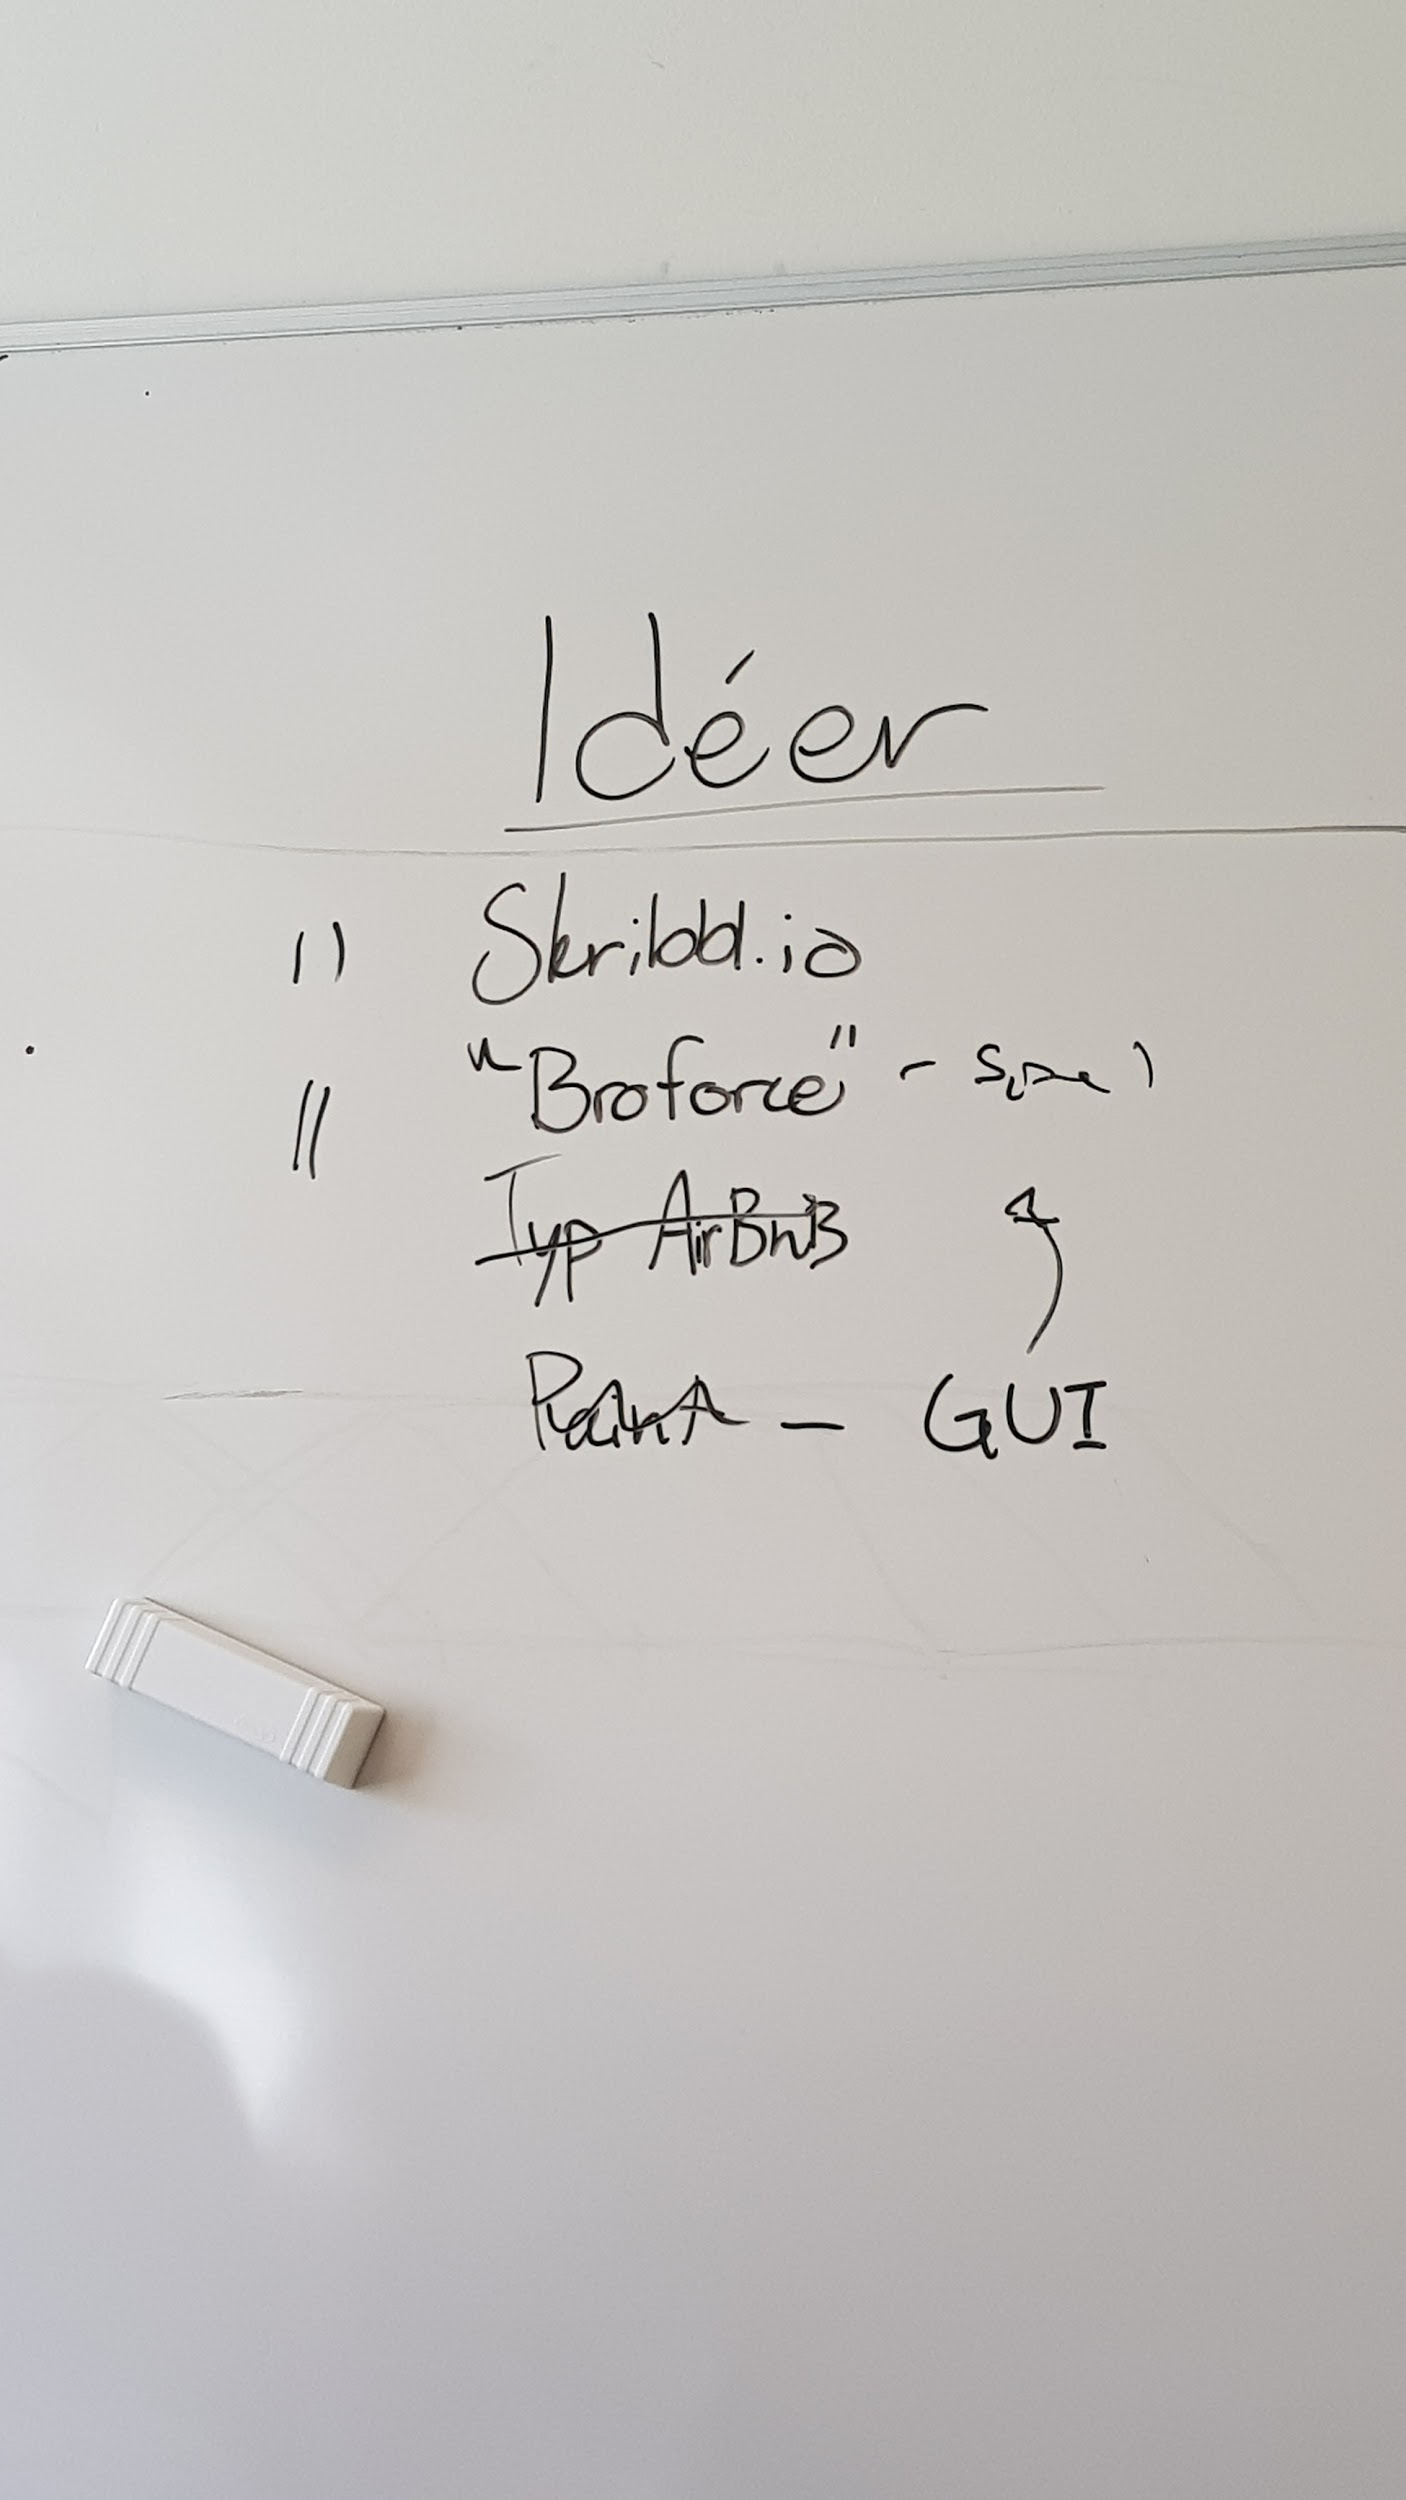 Idéer
Skribbl.io
"Broforce" - Spel
Typ AirBnB
Paint - GUI